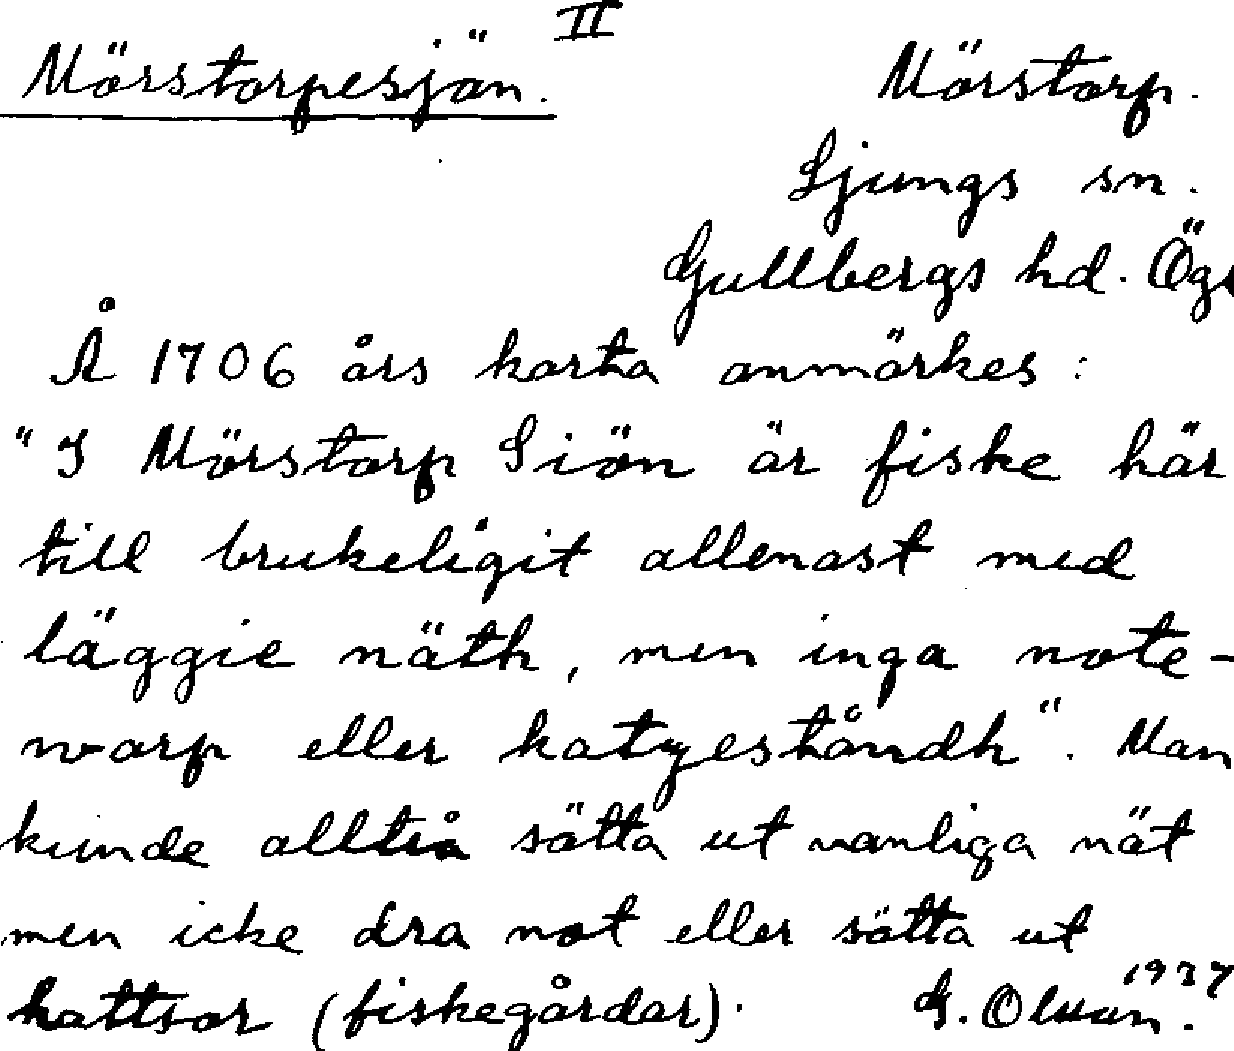 II
Mörstorpesjön. Mörstorp.
Ljungs sn.
Gullbergs hd. Ög
Å 1706 års karta anmärkes:
"I Mörstorp Siön är fiske här
till brukeligit allenast med
läggie näth, men inga note-
warp eller katzeståndh". Man
kunde alltså sätta ut vanliga nät
men icke dra not eller sätta ut
kattsor (fiskegårdar). G. Olsson.
1937